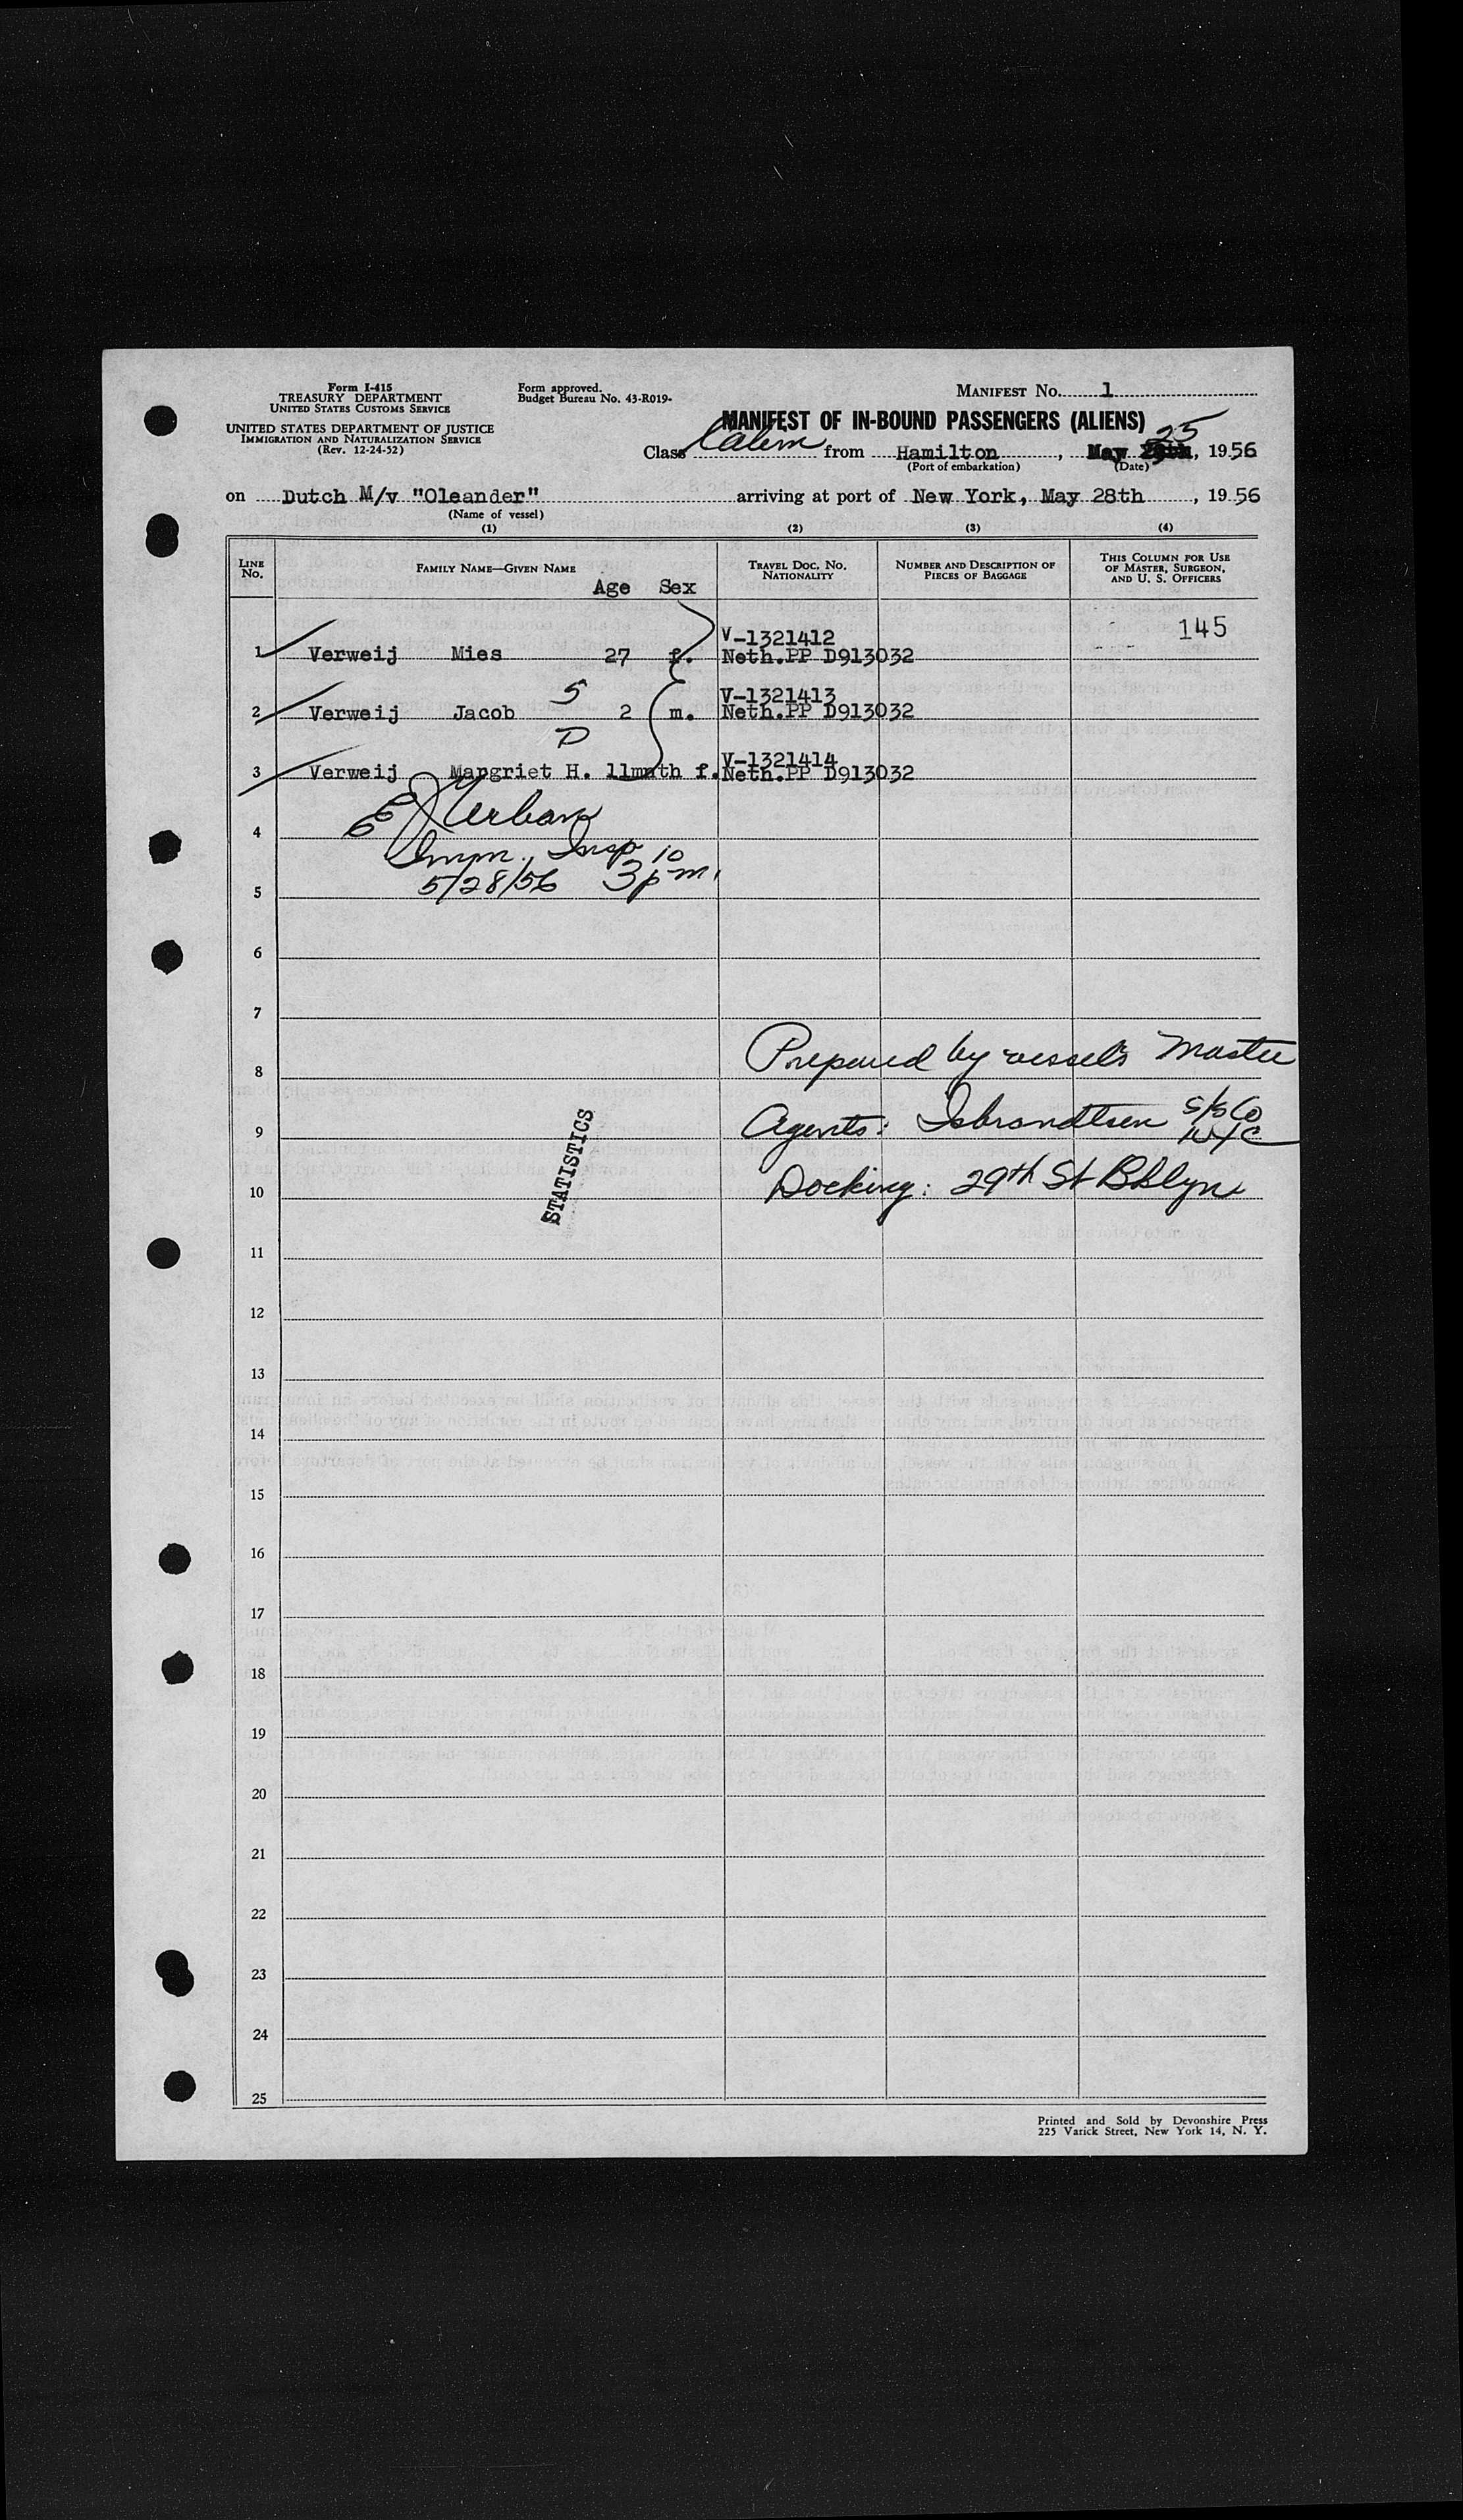 Form I-415
TREASURY DEPARTMENT
UNITED STATES CUSTOMS SERVICE
UNITED STATES DEPARTMENT OF JUSTICE
IMMIGRATION AND NATURALIZATION SERVICE
(Rev. 12-24-52)
Form approved.
Budget Bureau No. 43-R019-
MANIFEST No. 1
MANIFEST OF IN-BOUND PASSENGERS (ALIENS)
Class from Hamilton, May 25, 1956
(Port of embarkation) (Date)
on Dutch M/v "Oleander" arriving at port of New York, May 28th, 1956
(Name of vessel)
(1) (2) (3) (4)
LINE No. FAMILY NAME—GIVEN NAME Age Sex TRAVEL DOC. NO. NATIONALITY NUMBER AND DESCRIPTION OF PIECES OF BAGGAGE THIS COLUMN FOR USE OF MASTER, SURGEON, AND U. S. OFFICERS
145
V-1321412
1 Verweij Mies 27 f. Neth.PP D913032
5 V-1321413
2 Verweij Jacob 2 m. Neth.PP D913032
D V-1321414
3 Verweij Margriet H. 11mnth f. Neth.PP D913032
4
Imm. Insp
5/28/56 3 10 pm.
5
6
7
Prepared by vessels Master
8
Agents: Isbrandtsen S/S Co NYC
9
Docking: 29th St Bklyn
10
STATISTICS
11
12
13
14
15
16
17
18
19
20
21
22
23
24
25
Printed and Sold by Devonshire Press
225 Varick Street, New York 14, N. Y.